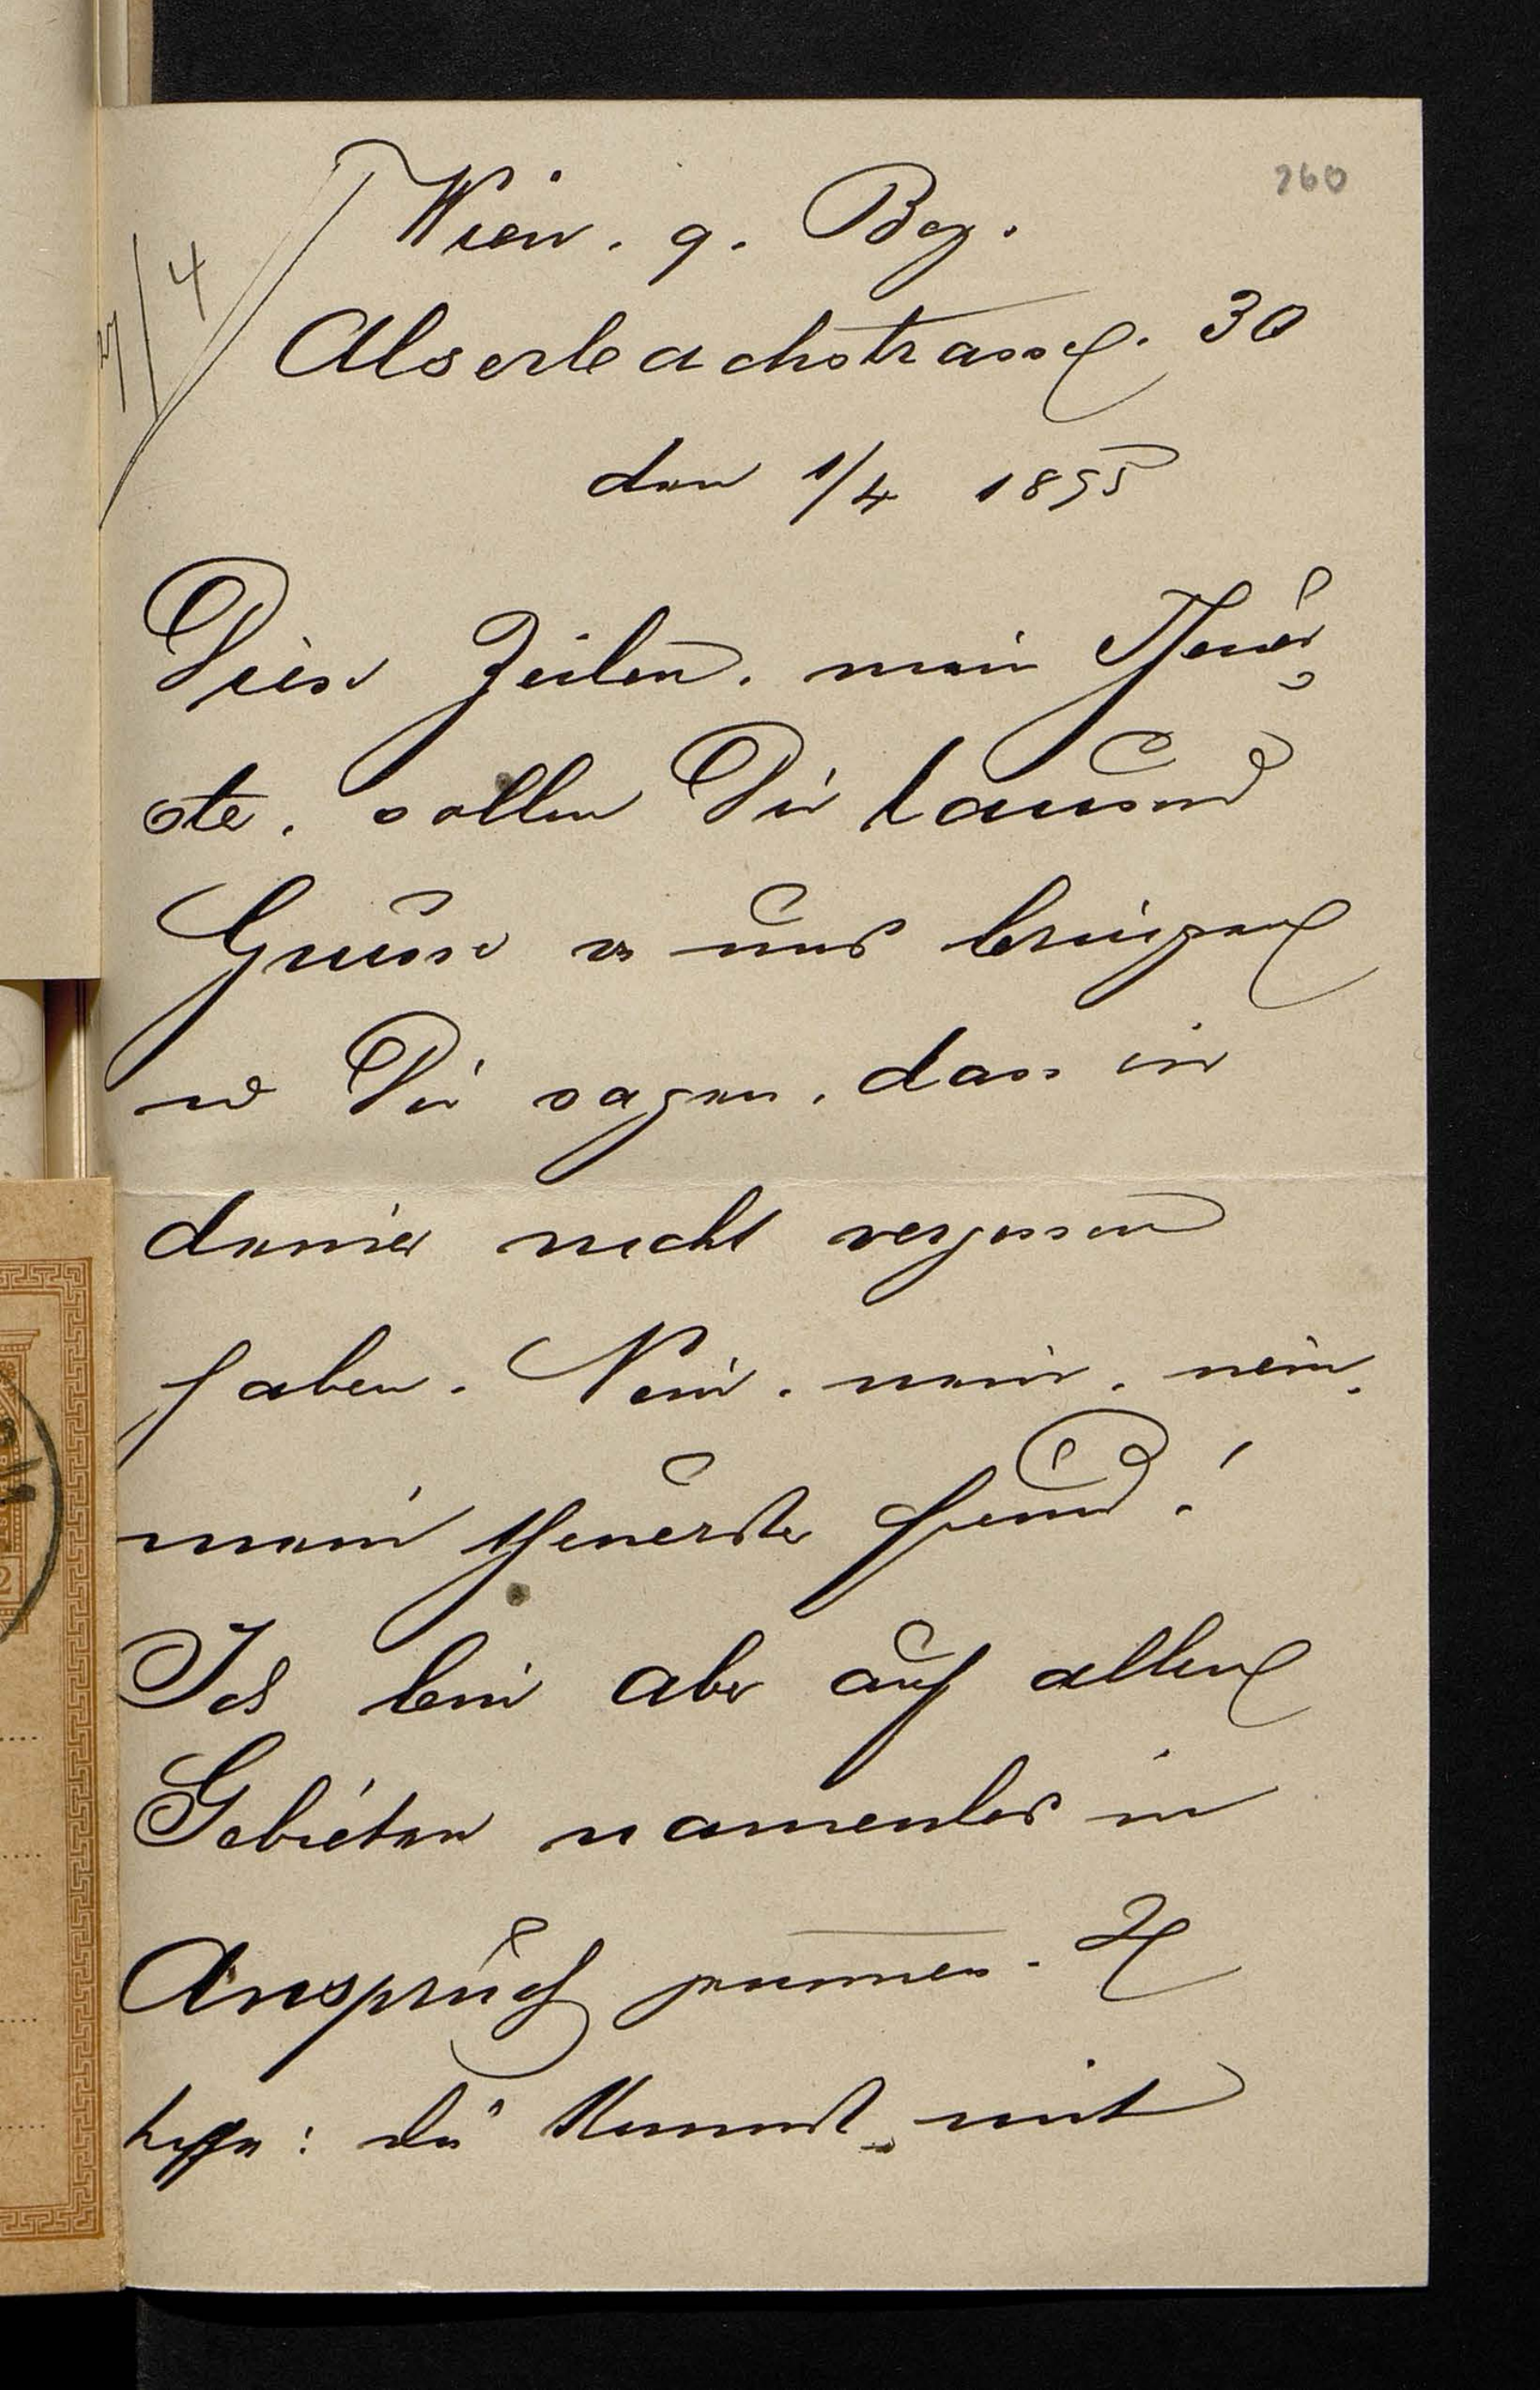 260
7/4
Wien. 9. Bez.
Alserbachstrasse. 30
den 1/4 1895
Diese Zeilen, mein Theuer
ste, sollen Dir tausend
Grüsse v uns bringen
u Dir sagen, dass wir
deiner nicht vergessen
haben. Nein, nein, nein,
mein theuerster Freund!
Ich bin aber auf allen
Gebieten namenlos in
Anspruch genommen. Ich
hoffe: du kommst mit